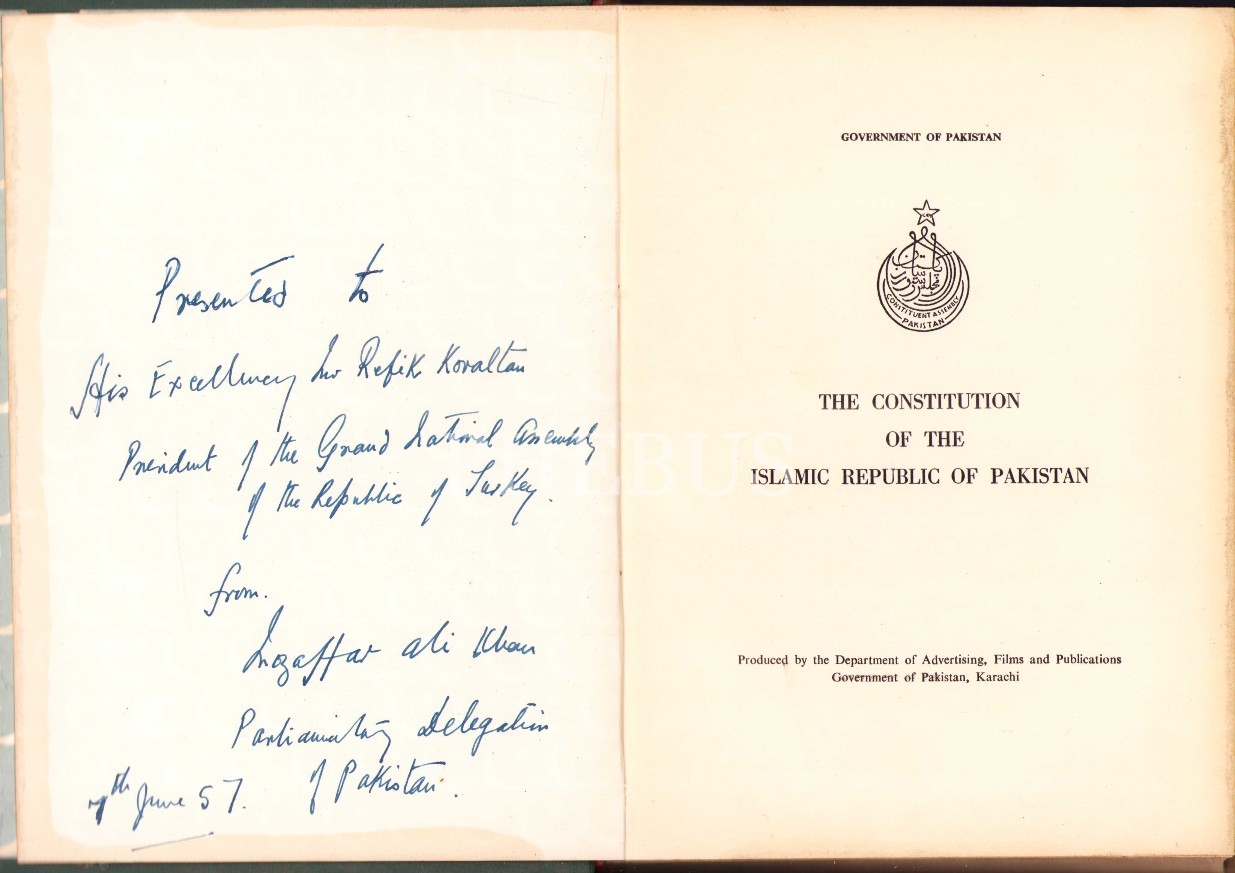 Presented to
His Excellency Mr Refik Koraltan
President of the Grand National Assembly
of the Republic of Turkey.
from.
Mozaffar Ali Khan
Parliamentary Delegation
of Pakistan.
7th June 57.
GOVERNMENT OF PAKISTAN
CONSTITUENT ASSEMBLY
PAKISTAN
THE CONSTITUTION
OF THE
ISLAMIC REPUBLIC OF PAKISTAN
Produced by the Department of Advertising, Films and Publications
Government of Pakistan, Karachi